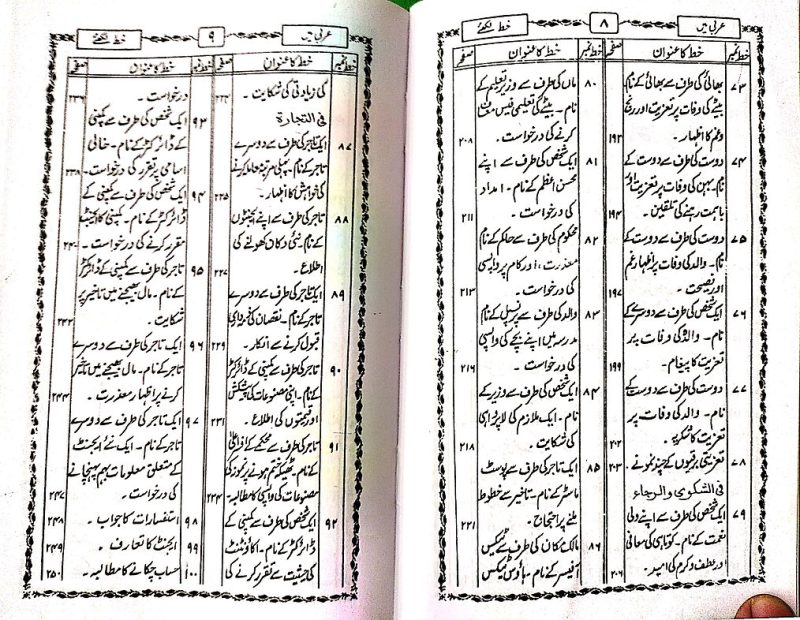 عربی میں
۸
خط لکھئے
خط نمبر
خط کا عنوان
صفحہ
خط نمبر
خط کا عنوان
صفحہ
۷۳
بھائی کی طرف سے بھائی کے نام
بیٹے کی وفات پر تعزیت اور رنج
و غم کا اظہار۔
۱۹۲
۷۴
دوست کی طرف سے دوست کے
نام۔ بہن کی وفات پر تعزیت اور
باہمت رہنے کی تلقین۔
۱۹۴
۷۵
دوست کی طرف سے دوست کے
نام۔ والد کی وفات پر اظہار غم
اور نصیحت۔
۱۹۷
۷۶
ایک شخص کی طرف سے دوسرے کے
نام۔ والدہ کی وفات پر
تعزیت کا پیغام۔
۱۹۹
۷۷
دوست کی طرف سے دوست کے
نام۔ والد کی وفات پر
تعزیت کا شکریہ۔
۲۰۲
۷۸
تعزیتی برقیوں کے چند نمونے۔
۲۰۳
فی الشکوی والرجاء
۷۹
ایک شخص کی طرف سے اپنے ولی
نعمت کے نام۔ کوتاہی کی معافی
اور لطف و کرم کی امید۔
۲۰۶
۸۰
ماں کی طرف سے وزیر تعلیم کے
نام۔ بیٹے کی تعلیمی فیس معاف
کرنے کی درخواست۔
۲۰۸
۸۱
ایک شخص کی طرف سے اپنے
محسن اعظم کے نام۔ امداد
کی درخواست۔
۲۱۱
۸۲
محکوم کی طرف سے حاکم کے نام
معذرت، اور کام پر واپسی
کی درخواست۔
۲۱۳
۸۳
والد کی طرف سے پرنسپل کے نام
مدرسہ میں اپنے بچے کی واپسی
کی درخواست۔
۲۱۶
۸۴
ایک شخص کی طرف سے وزیر کے
نام۔ ایک ملازم کی لاپرواہی
کی شکایت۔
۲۱۸
۸۵
ایک تاجر کی طرف سے پوسٹ
ماسٹر کے نام۔ تاخیر سے خطوط
ملنے پر احتجاج۔
۲۲۱
۸۶
مالک مکان کی طرف سے ٹیکس
آفیسر کے نام۔ ہاؤس ٹیکس
عربی میں
۹
خط لکھئے
خط نمبر
خط کا عنوان
صفحہ
خط نمبر
خط کا عنوان
صفحہ
کی زیادتی کی شکایت۔
۲۲۳
فی التجارة
۸۷
ایک تاجر کی طرف سے دوسرے
تاجر کے نام۔ پہلی مرتبہ معاملہ کرنے
کی خواہش کا اظہار۔
۲۲۵
۸۸
تاجر کی طرف سے اپنے ایجنٹوں
کے نام۔ نئی دکان کھولنے کی
اطلاع۔
۲۲۷
۸۹
ایک تاجر کی طرف سے دوسرے
تاجر کے نام۔ نقصان کی ذمہ داری
قبول کرنے سے انکار۔
۲۲۹
۹۰
تاجر کی طرف سے کمپنی کے ڈائرکٹر
کے نام۔ اپنی مصنوعات کی پیشکش
اور قیمتوں کی اطلاع۔
۲۳۱
۹۱
تاجر کی طرف سے محکمے کے افسر اعلیٰ
کے نام۔ ٹھیکہ ختم ہونے پر
مصنوعات کی واپسی کا مطالبہ۔
۲۳۴
۹۲
ایک شخص کی طرف سے کمپنی کے
ڈائرکٹر کے نام۔ اکاؤنٹنٹ
کی حیثیت سے تقرر کرنے کی
درخواست۔
۲۳۶
۹۳
ایک شخص کی طرف سے کمپنی
کے ڈائرکٹر کے نام۔ خالی
اسامی پر تقرر کی درخواست۔
۲۳۸
۹۴
ایک شخص کی طرف سے کمپنی کے
ڈائرکٹر کے نام۔ کمپنی کا ایجنٹ
مقرر کرنے کی درخواست۔
۲۴۰
۹۵
تاجر کی طرف سے کمپنی کے ڈائرکٹر
کے نام۔ مال بھیجنے میں تاخیر پر
شکایت۔
۲۴۲
۹۶
ایک تاجر کی طرف سے دوسرے
تاجر کے نام۔ مال بھیجنے میں تاخیر
کرنے پر اظہار معذرت۔
۲۴۴
۹۷
ایک تاجر کی طرف سے دوسرے
تاجر کے نام۔ ایک نئے ایجنٹ
کے متعلق معلومات بہم پہنچانے
کی درخواست۔
۲۴۷
۹۸
استفسارات کا جواب۔
۲۴۸
۹۹
ایجنٹ کا تعارف۔
۲۴۹
۱۰۰
حساب چکانے کا مطالبہ۔
۲۵۰